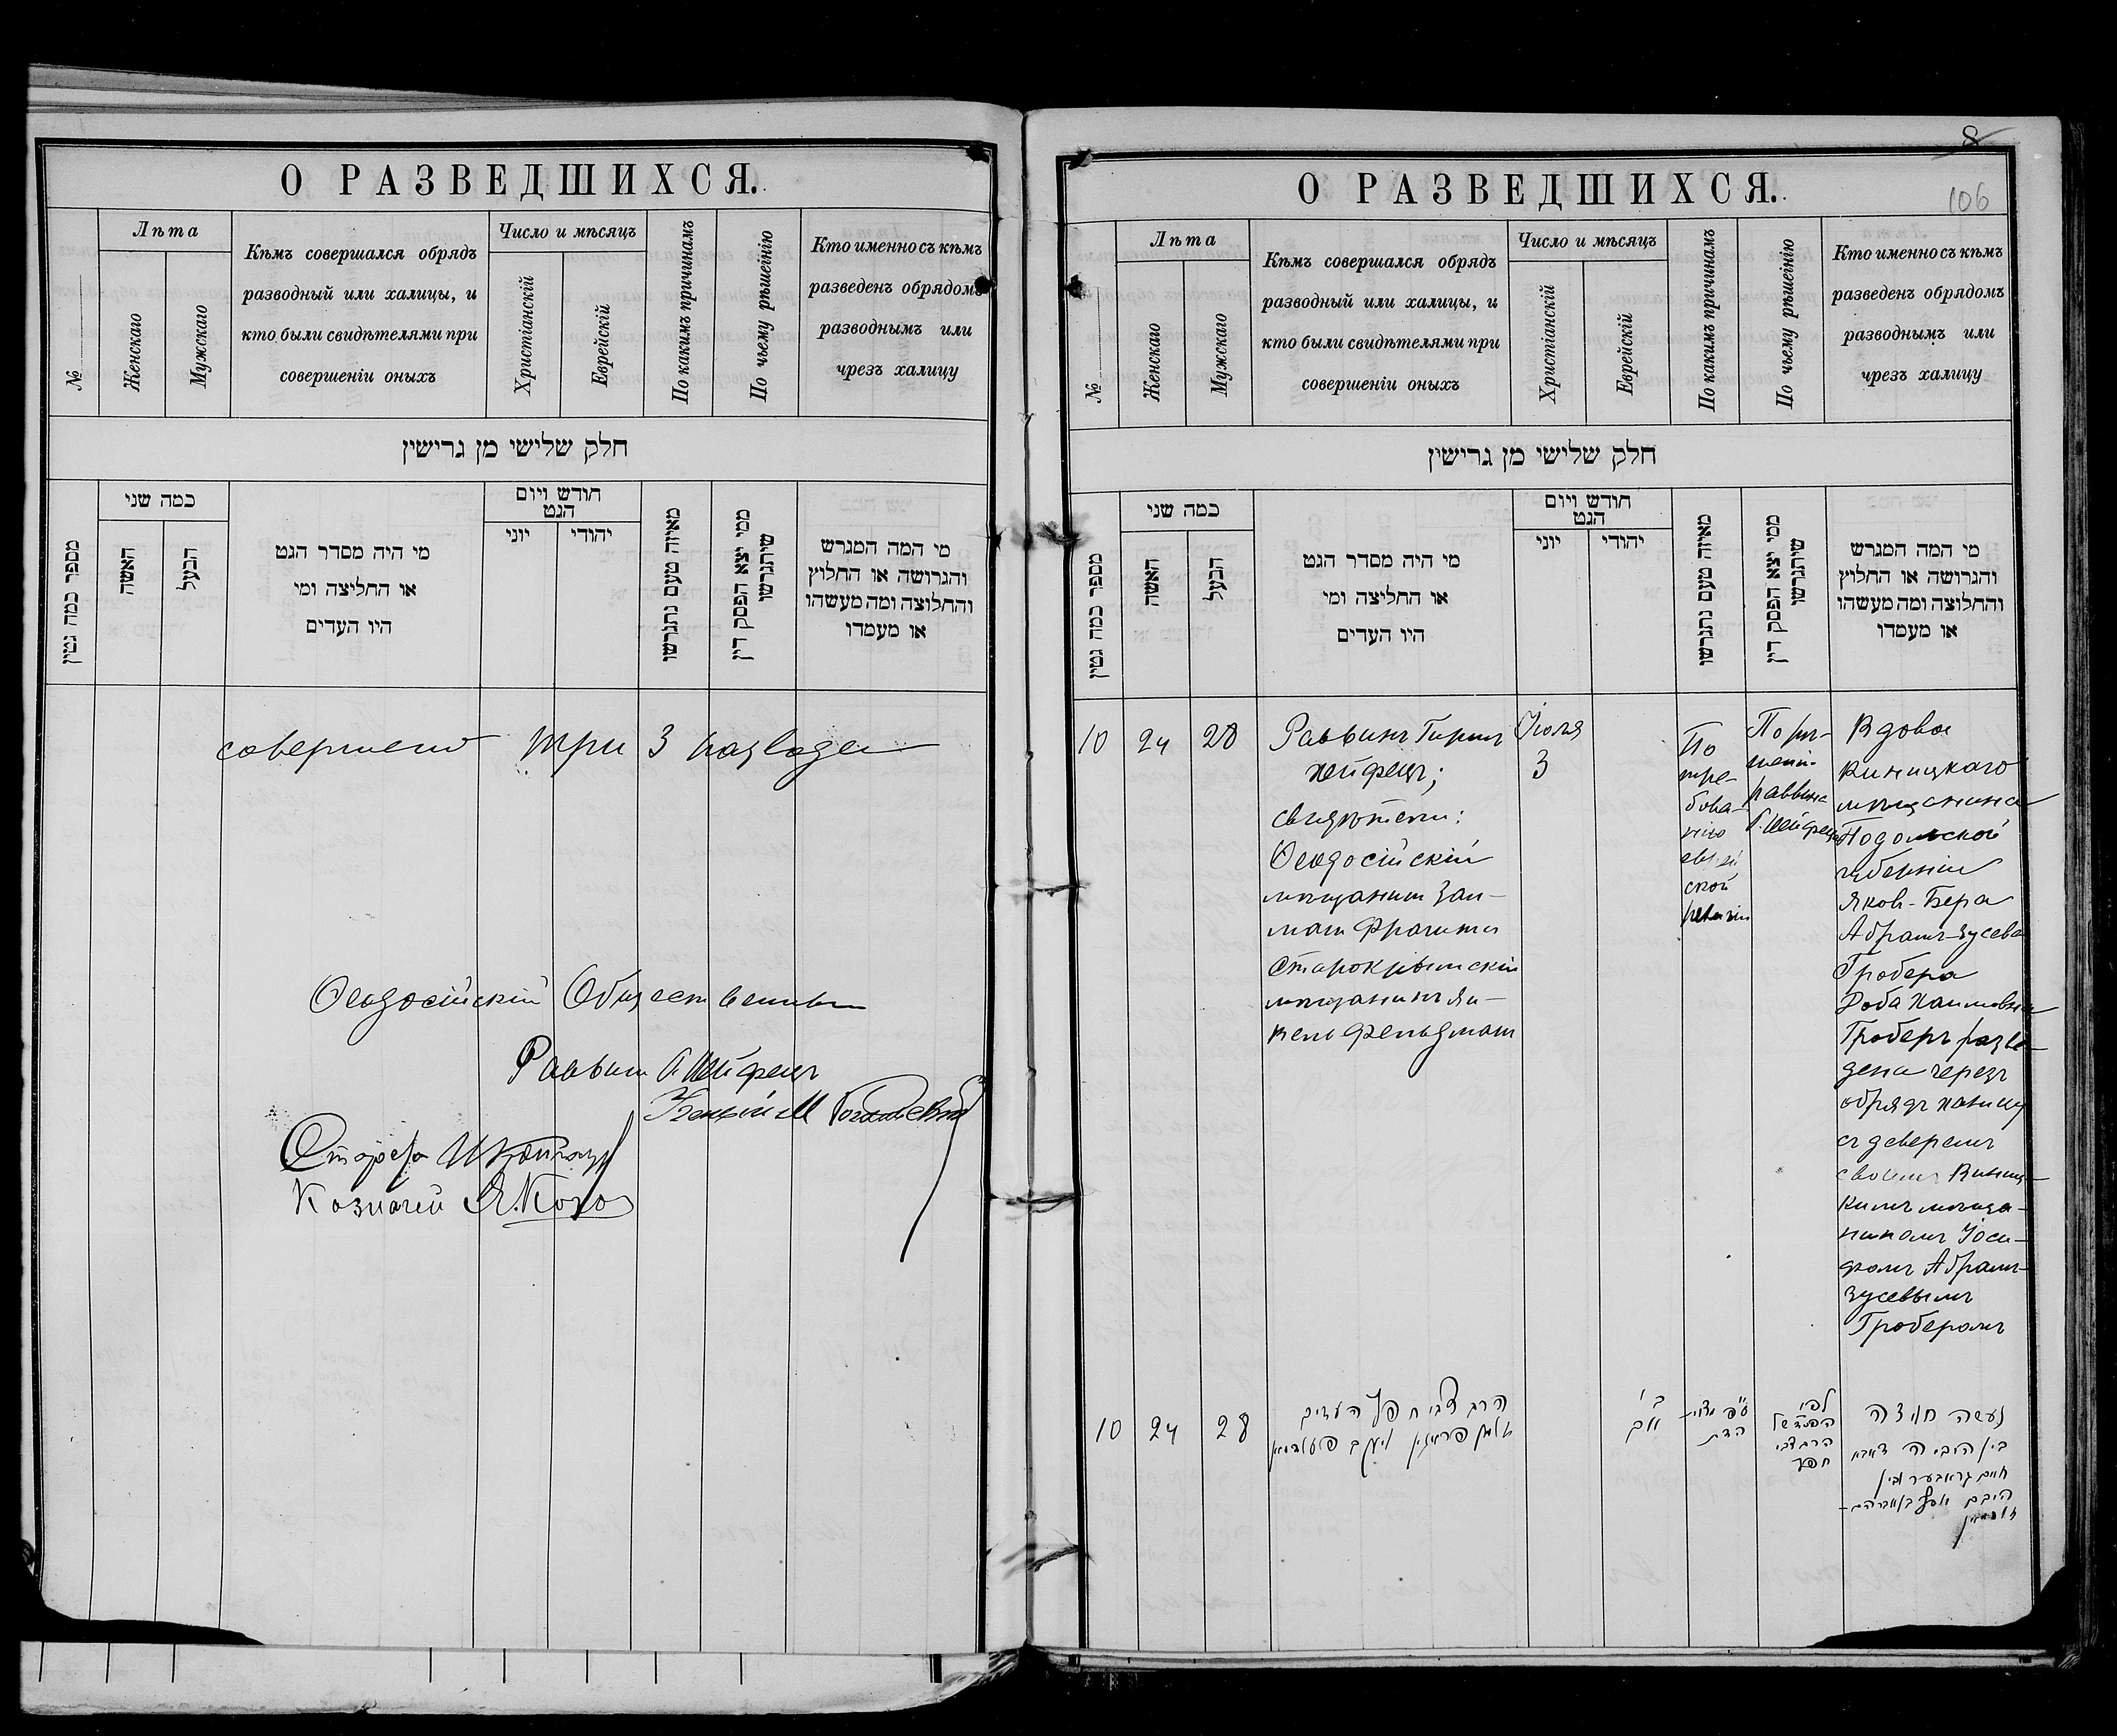 О РАЗВЕДШИХСЯ.
№
Лѣта
Женскаго
Мужскаго
Кѣмъ совершался обрядъ
разводный или халицы, и
кто были свидѣтелями при
совершеніи оныхъ
Число и мѣсяцъ
Христіанскій
Еврейскій
По какимъ причинамъ
По чьему рѣшенію
Кто именно съ кѣмъ
разведенъ обрядомъ
разводнымъ или
чрезъ халицу
חלק שלישי מן גרישין
מספר כמה גטין
כמה שני
האשה
הבעל
מי היה מסדר הגט
או החליצה ומי
היו העדים
חודש ויום
הגט
יוני
יהודי
מאיזה טעם נתגרשו
ממי יצא הפסק דין
שיתגרשו
מי המה המגרש
והגרושה או החלוץ
והחלוצה ומה מעשהו
או מעמדו
совершено три 3 развода
Ѳеодосійскій Общественный
Раввинъ Г. Хейфецъ
Староста
Казначей Я. Кого
8
О РАЗВЕДШИХСЯ.
106
№
Лѣта
Женскаго
Мужскаго
Кѣмъ совершался обрядъ
разводный или халицы, и
кто были свидѣтелями при
совершеніи оныхъ
Число и мѣсяцъ
Христіанскій
Еврейскій
По какимъ причинамъ
По чьему рѣшенію
Кто именно съ кѣмъ
разведенъ обрядомъ
разводнымъ или
чрезъ халицу
חלק שלישי מן גרישין
מספר כמה גטין
כמה שני
האשה
הבעל
מי היה מסדר הגט
או החליצה ומי
היו העדים
חודש ויום
הגט
יוני
יהודי
מאיזה טעם נתגרשו
ממי יצא הפסק דין
שיתגרשו
מי המה המגרש
והגרושה או החלוץ
והחלוצה ומה מעשהו
או מעמדו
10
24
28
Раввинъ Гирш
Хейфецъ;
свидѣтели:
Ѳеодосійскій
мѣщанинъ Зал-
ман
Старокрымскій
мѣщанинъ Ян-
кель Фельдман
Іюля
3
По
тре-
бова-
нію
еврей
ской
религіи
По рѣ-
шенію
раввина
Г. Хейфеца
Вдова
Виницкаго
мѣщанина
Подольской
губерніи
Яков-Бера
Абрамъ-Зусева
Гробера
Доба Хаимовна
Гроберъ разве-
дена черезъ
обрядъ халицу
съ деверемъ
своимъ Виниц-
кимъ мѣща-
ниномъ Іоси-
фомъ Абрамъ-
Зусевымъ
Гроберомъ
10
24
28
הרב צבי חפץ העדים
זלמן פראגין ויעקב פעלדמאן
ב'
אב
ע"פ מצות
הדת
לפי
הפס"ד של
הרב צבי
חפץ
נעשה חליצה
בין היבמה דאבא
חיים גראבער ובין
היבם יוסף בן אברהם-